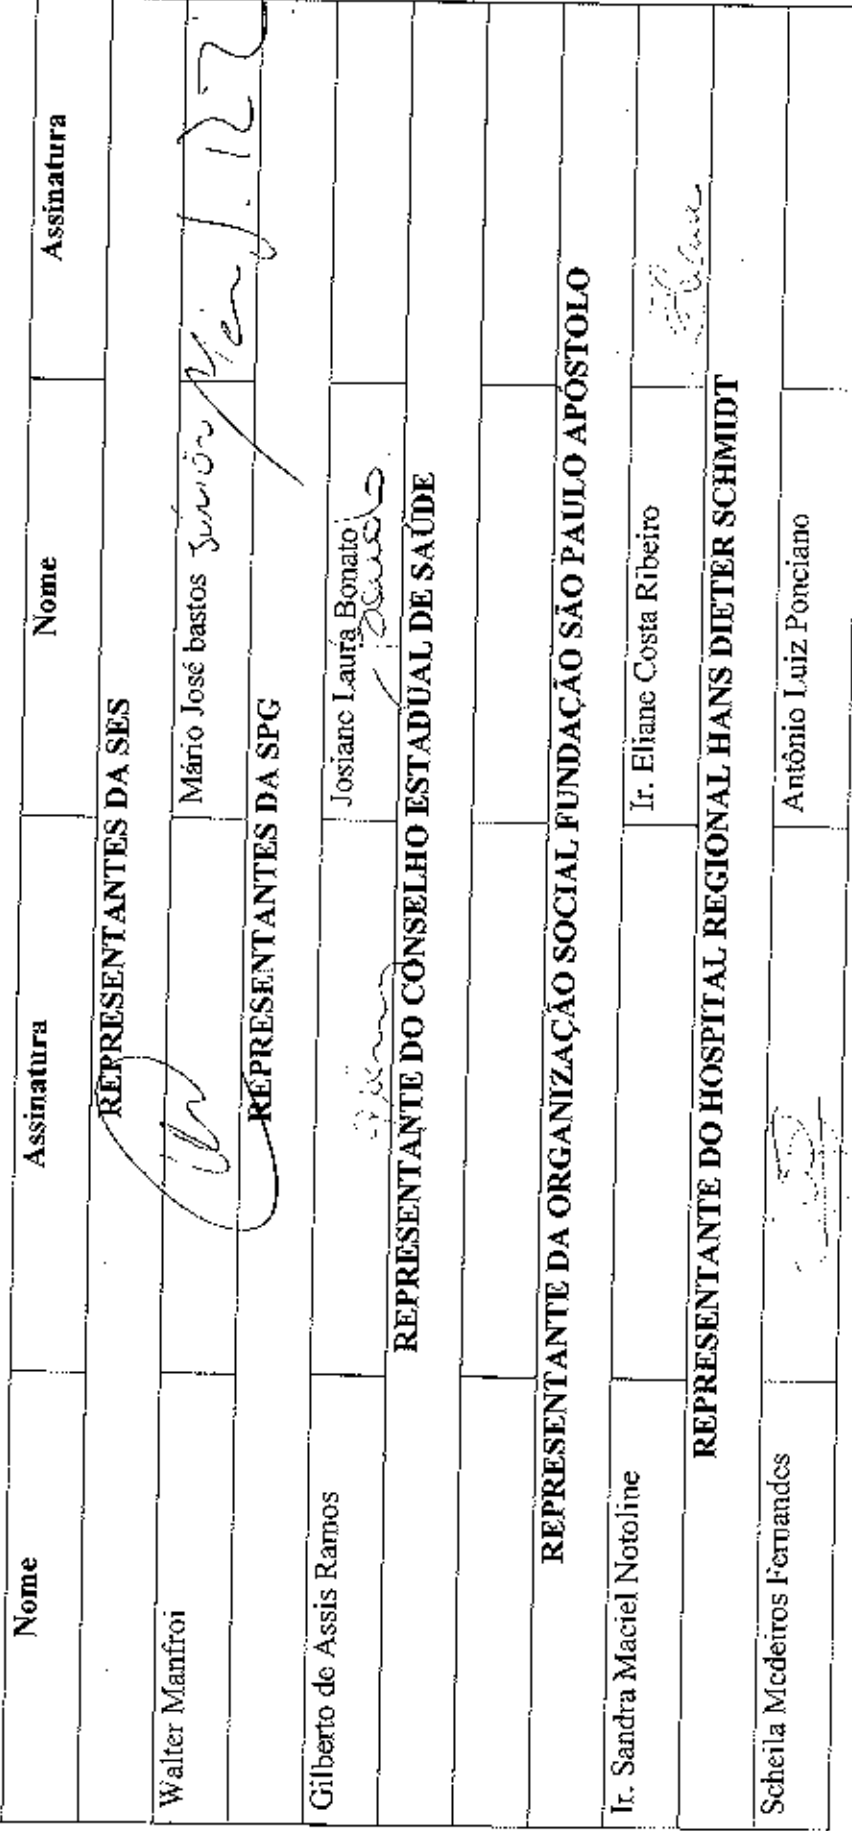 Nome Assinatura Nome Assinatura
REPRESENTANTES DA SES
Walter Manfroi Mário José bastos Júnior
REPRESENTANTES DA SPG
Gilberto de Assis Ramos Josiane Laura Bonato
REPRESENTANTE DO CONSELHO ESTADUAL DE SAÚDE
REPRESENTANTE DA ORGANIZAÇÃO SOCIAL FUNDAÇÃO SÃO PAULO APOSTOLO
Ir. Sandra Maciel Notoline Ir. Eliane Costa Ribeiro
REPRESENTANTE DO HOSPITAL REGIONAL HANS DIETER SCHMIDT
Scheila Medeiros Fernandes Antônio Luiz Ponciano